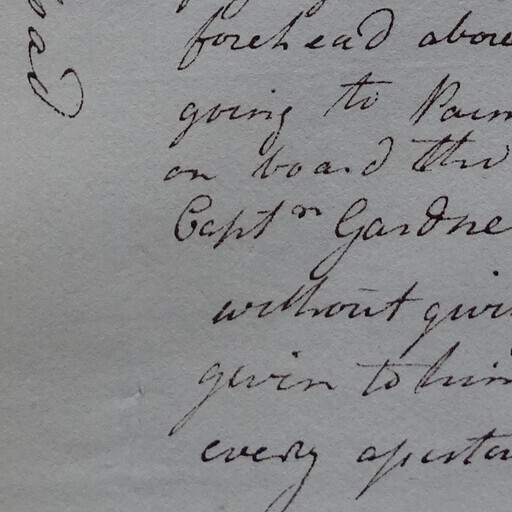 forehead above
going to
on board the
Capt.n Gardne
without givi
given to him
every apertu